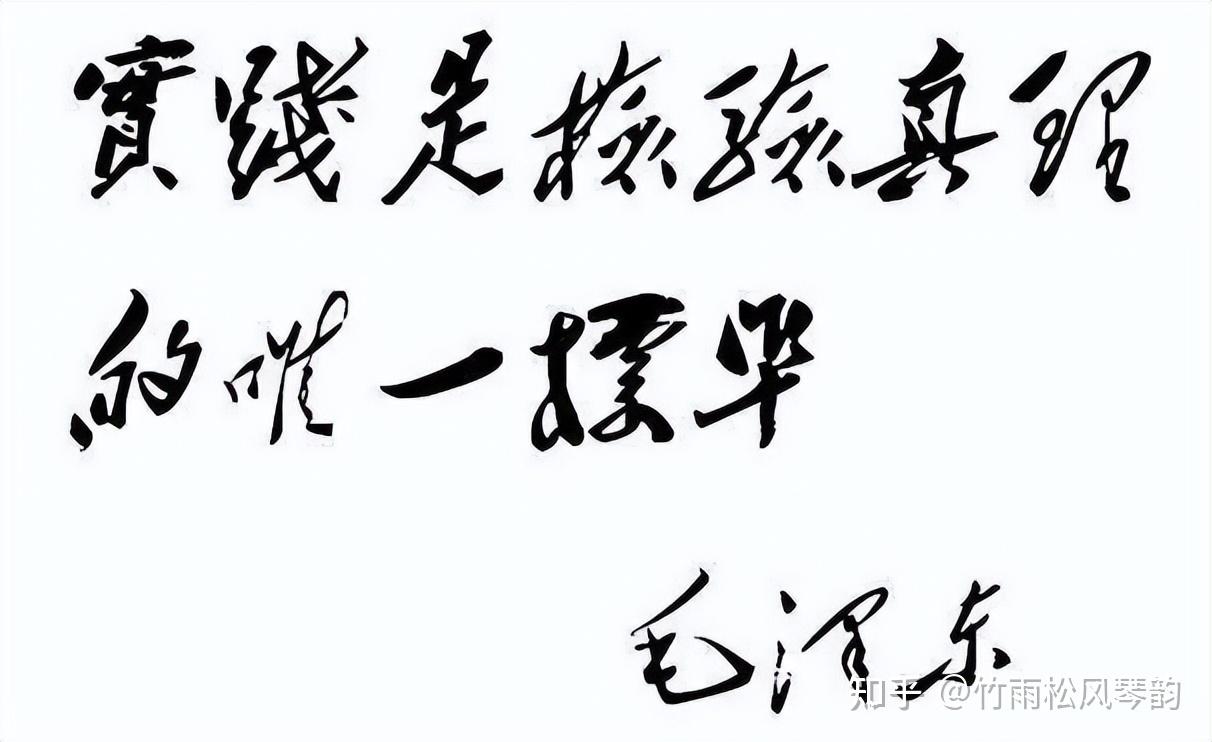 實踐是檢驗真理
的唯一標準
毛泽东
知乎 @竹雨松风琴韵